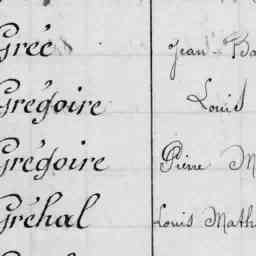 Gréc Jean-Ba
Grégoire Louis
Grégoire Pierre M
Gréhal Louis Math